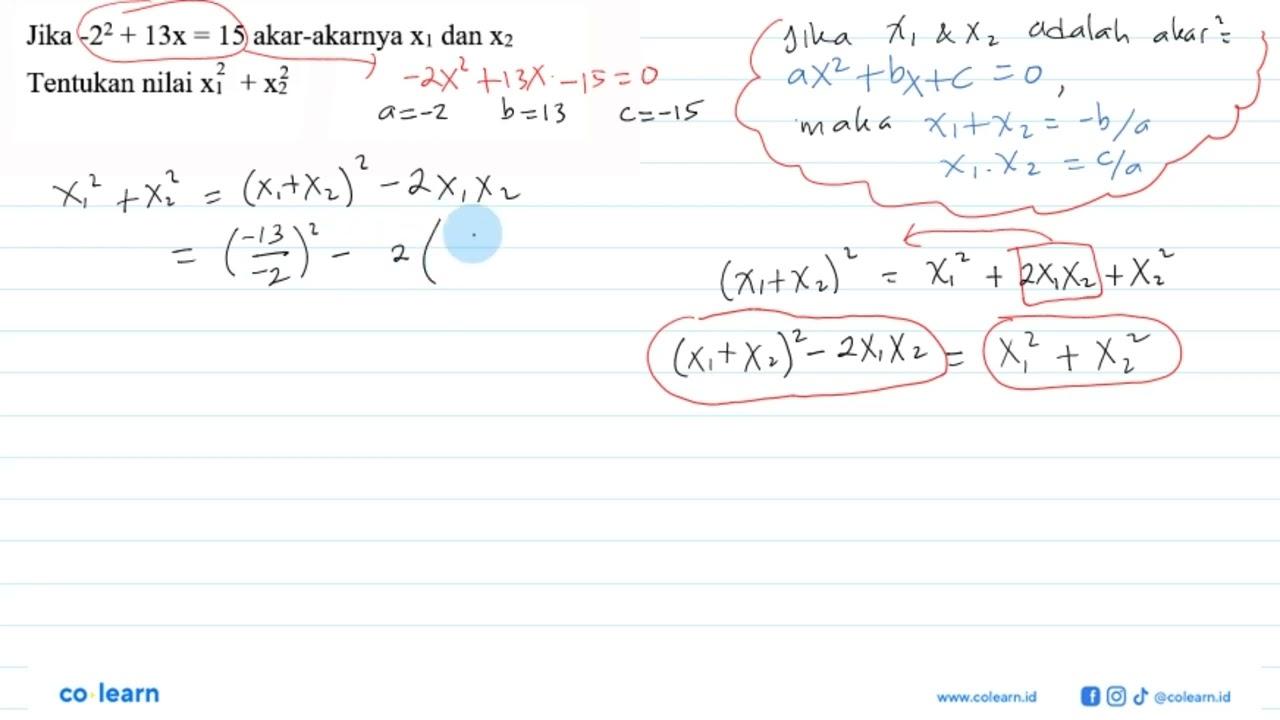 Jika -2² + 13x = 15 akar-akarnya x₁ dan x₂
Tentukan nilai x₁² + x₂²
-2x² + 13x - 15 = 0
a = -2 b = 13 c = -15
Jika x₁ & x₂ adalah akar² =
ax² + bx + c = 0,
maka x₁ + x₂ = -b/a
x₁ . x₂ = c/a
x₁² + x₂² = (x₁ + x₂)² - 2x₁x₂
= (-13/-2)² - 2(
(x₁ + x₂)² = x₁² + 2x₁x₂ + x₂²
(x₁ + x₂)² - 2x₁x₂ = x₁² + x₂²
co·learn
www.colearn.id
@colearn.id